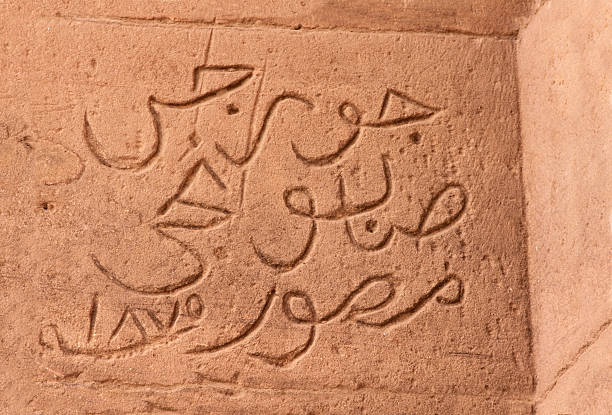 جورجس
صابونجي
مصور سنة ١٨٧٥